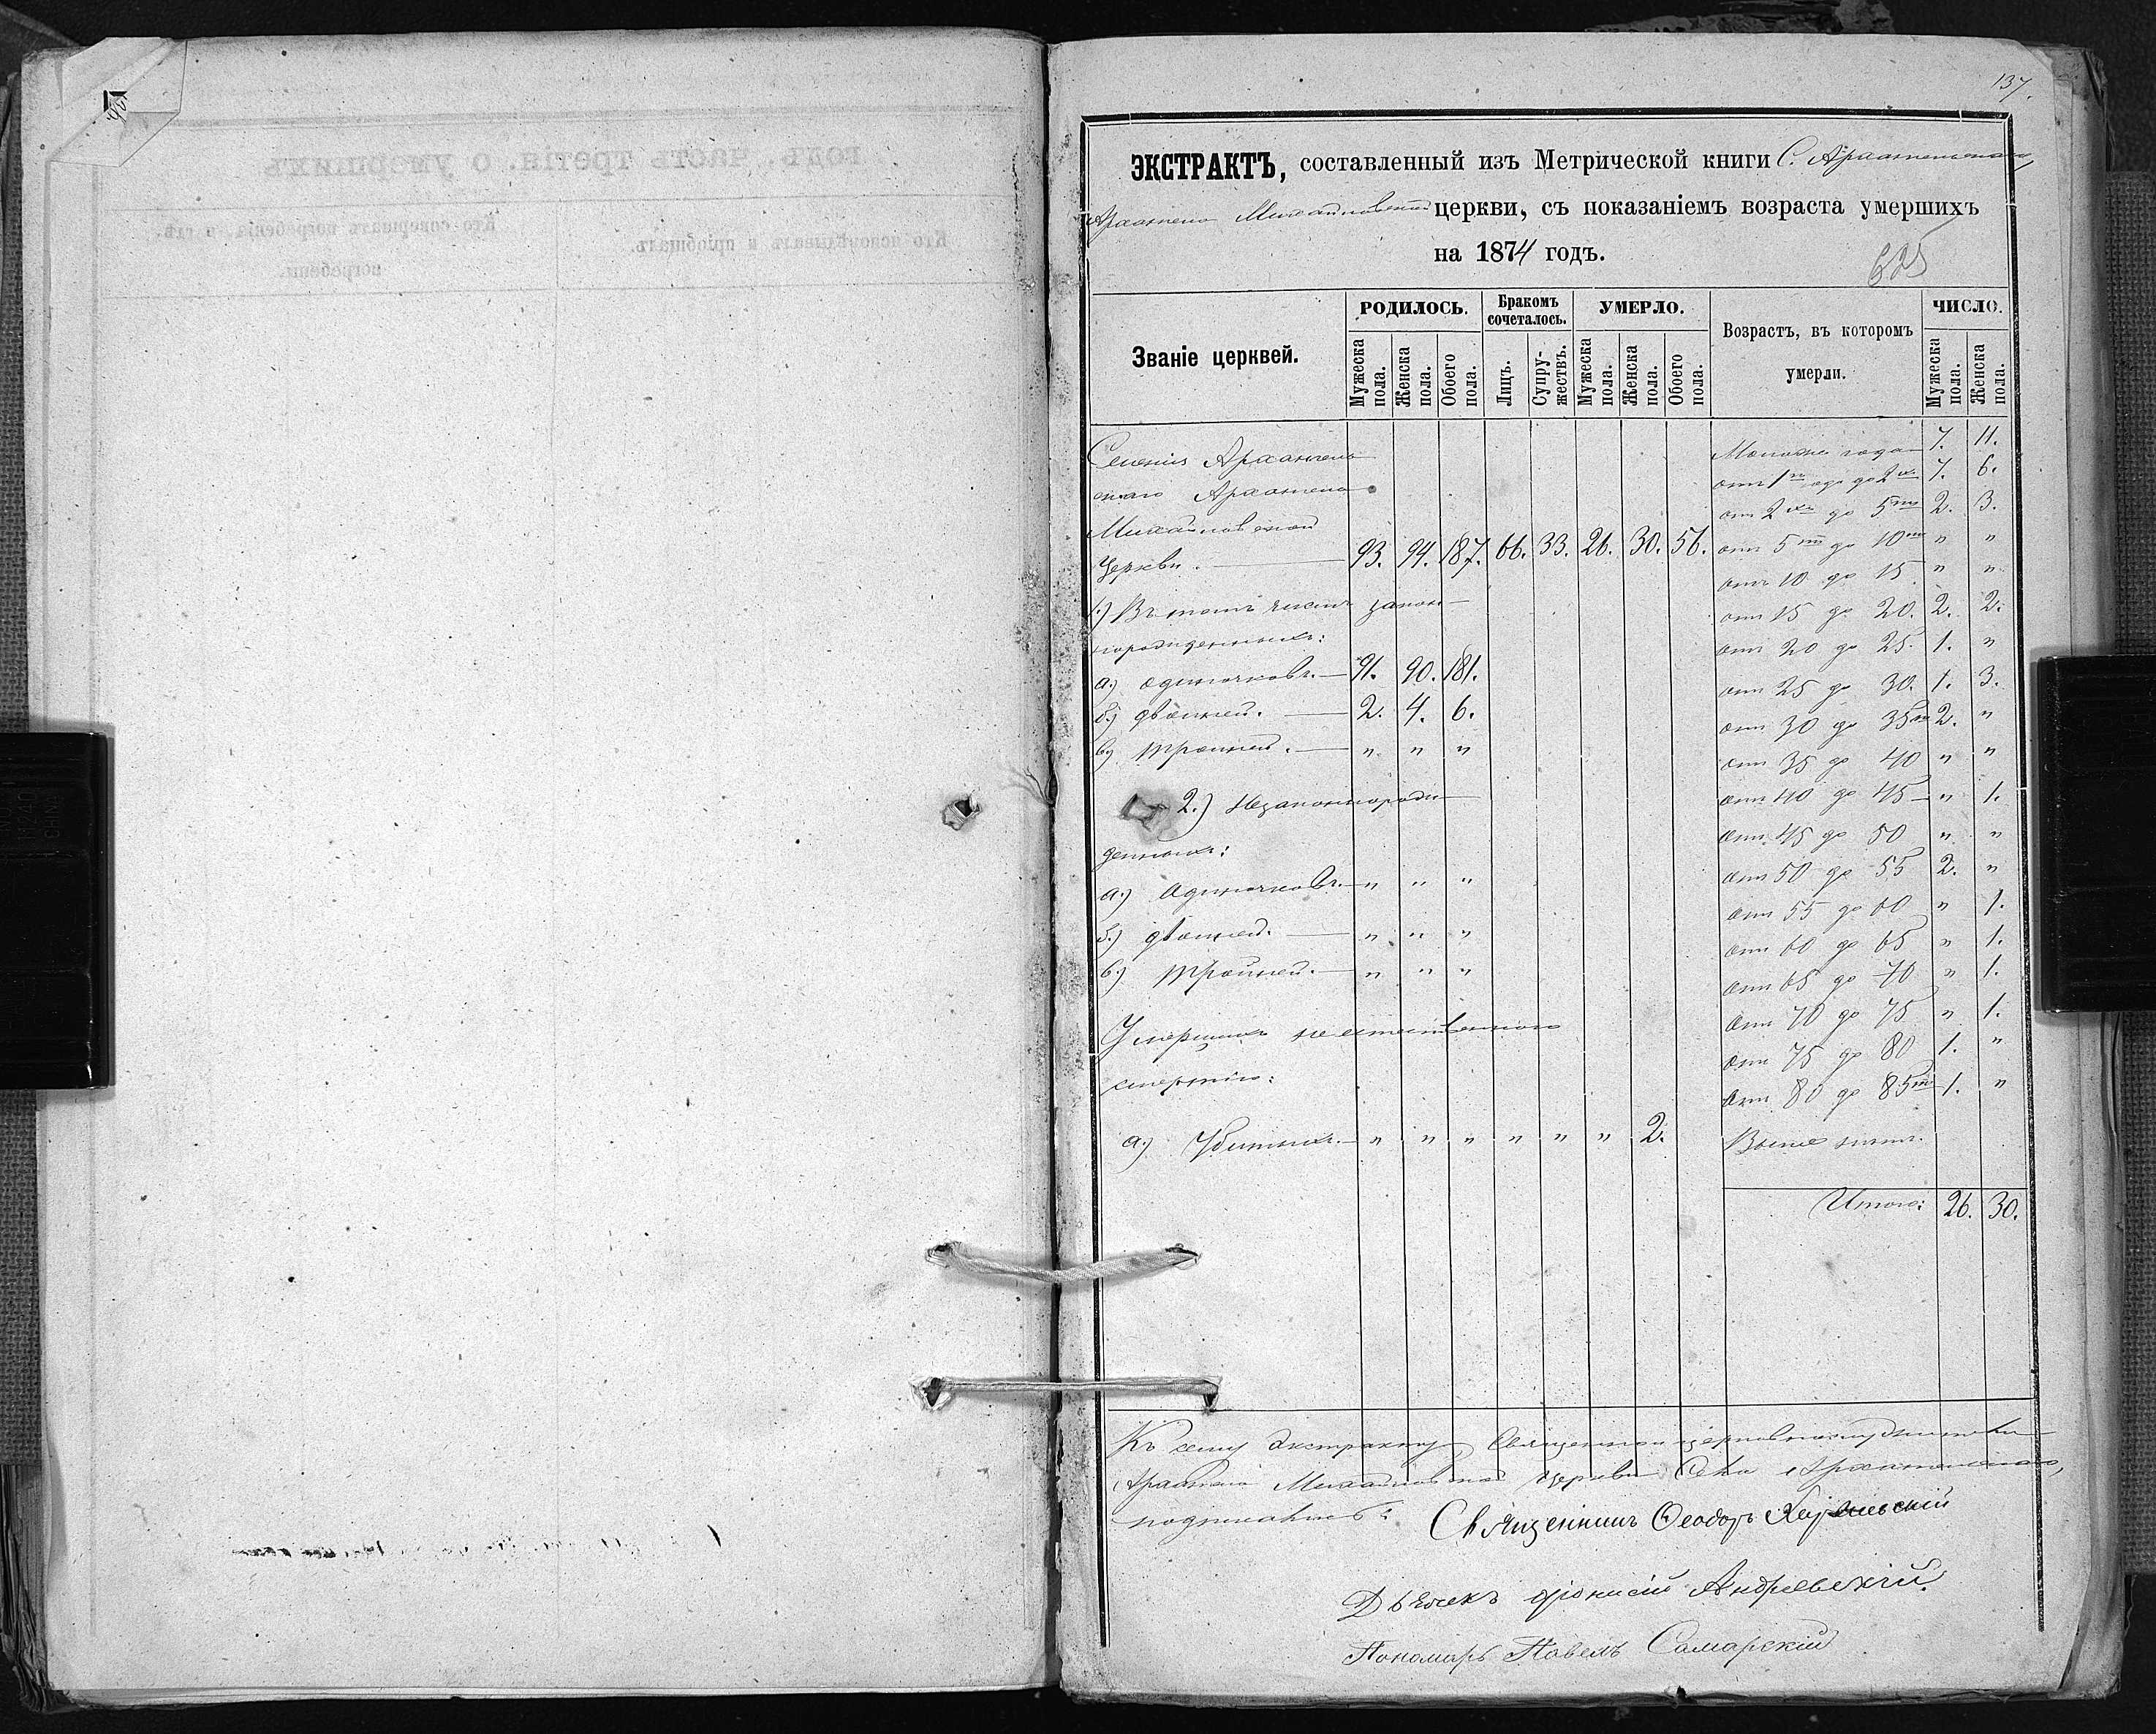 137.
ЭКСТРАКТЪ, составленный изъ Метрической книги С. Архангельскаго,
Архангело Михайловской церкви, съ показаніемъ возраста умершихъ
на 1874 годъ.
625
Званіе церквей. РОДИЛОСЬ. Бракомъ сочеталось. УМЕРЛО. Возрастъ, въ которомъ умерли. ЧИСЛО.
Мужеска пола. Женска пола. Обоего пола. Лицъ. Супружествъ. Мужеска пола. Женска пола. Обоего пола. Мужеска пола. Женска пола.
Селенія Архангель
скаго Архангело
Михайловской
Церкви. 93. 94. 187. 66. 33. 26. 30. 56.
1.) Въ томъ числѣ закон
норожденныхъ:
а.) одиночковъ. 91. 90. 181.
б.) двойней. 2. 4. 6.
в.) тройней. " " "
2.) Незаконнорож
денныхъ:
а.) Одиночковъ. " " "
б.) двойней. " " "
в.) тройней. " " "
Умершихъ неестественною
смертію:
а.) Убитыхъ. " " " " " " 2.
Моложе года 7. 11.
отъ 1го года до 2хъ 7. 6.
от 2хъ до 5ти 2. 3.
отъ 5ти до 10ти " "
отъ 10 до 15 " "
отъ 15 до 20. 2. 2.
отъ 20 до 25. 1. "
отъ 25 до 30. 1. 3.
отъ 30 до 35ти 2. "
отъ 35 до 40 " "
отъ 40 до 45 " 1.
отъ 45 до 50 " "
отъ 50 до 55 2. "
отъ 55 до 60 " 1.
отъ 60 до 65 " 1.
отъ 65 до 70 " 1.
отъ 70 до 75 " 1.
отъ 75 до 80 1. "
отъ 80 до 85ти 1. "
Выше
Итого: 26. 30.
Къ сему Экстракту Священно церковнослужители
Архангело Михайловской церкви Села Архангельскаго,
подписались:
Священникъ Феодоръ
Дьячекъ Діонисій Андріевскій.
Пономарь Павелъ Самарскій
годъ, часть третія. о умершихъ
Кто исповѣдывалъ и пріобщалъ.
Кто совершалъ погребеніе, и гдѣ
погребены.